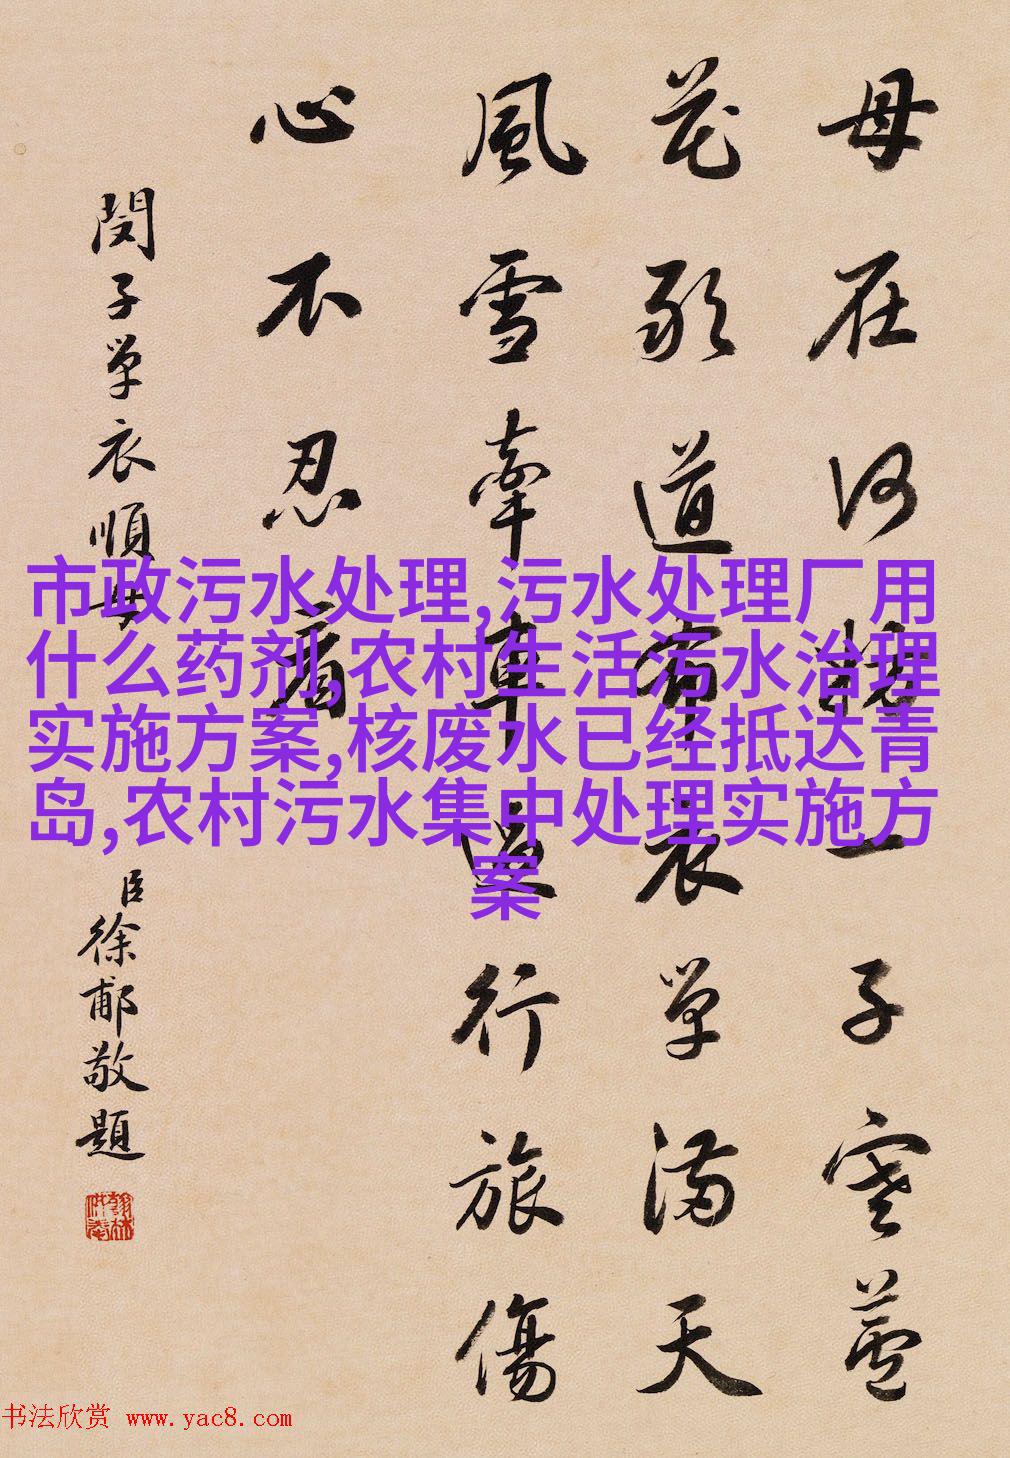 母在何一子寒蘆
花敢道衣單滿天
風雪牽車行旅傷
心不忍看
閔子單衣順母
臣徐郙敬題
市政污水处理,污水处理厂用
什么药剂,农村生活污水治理
实施方案,核废水已经抵达青
岛,农村污水集中处理实施方
案
书法欣赏 www.yac8.com